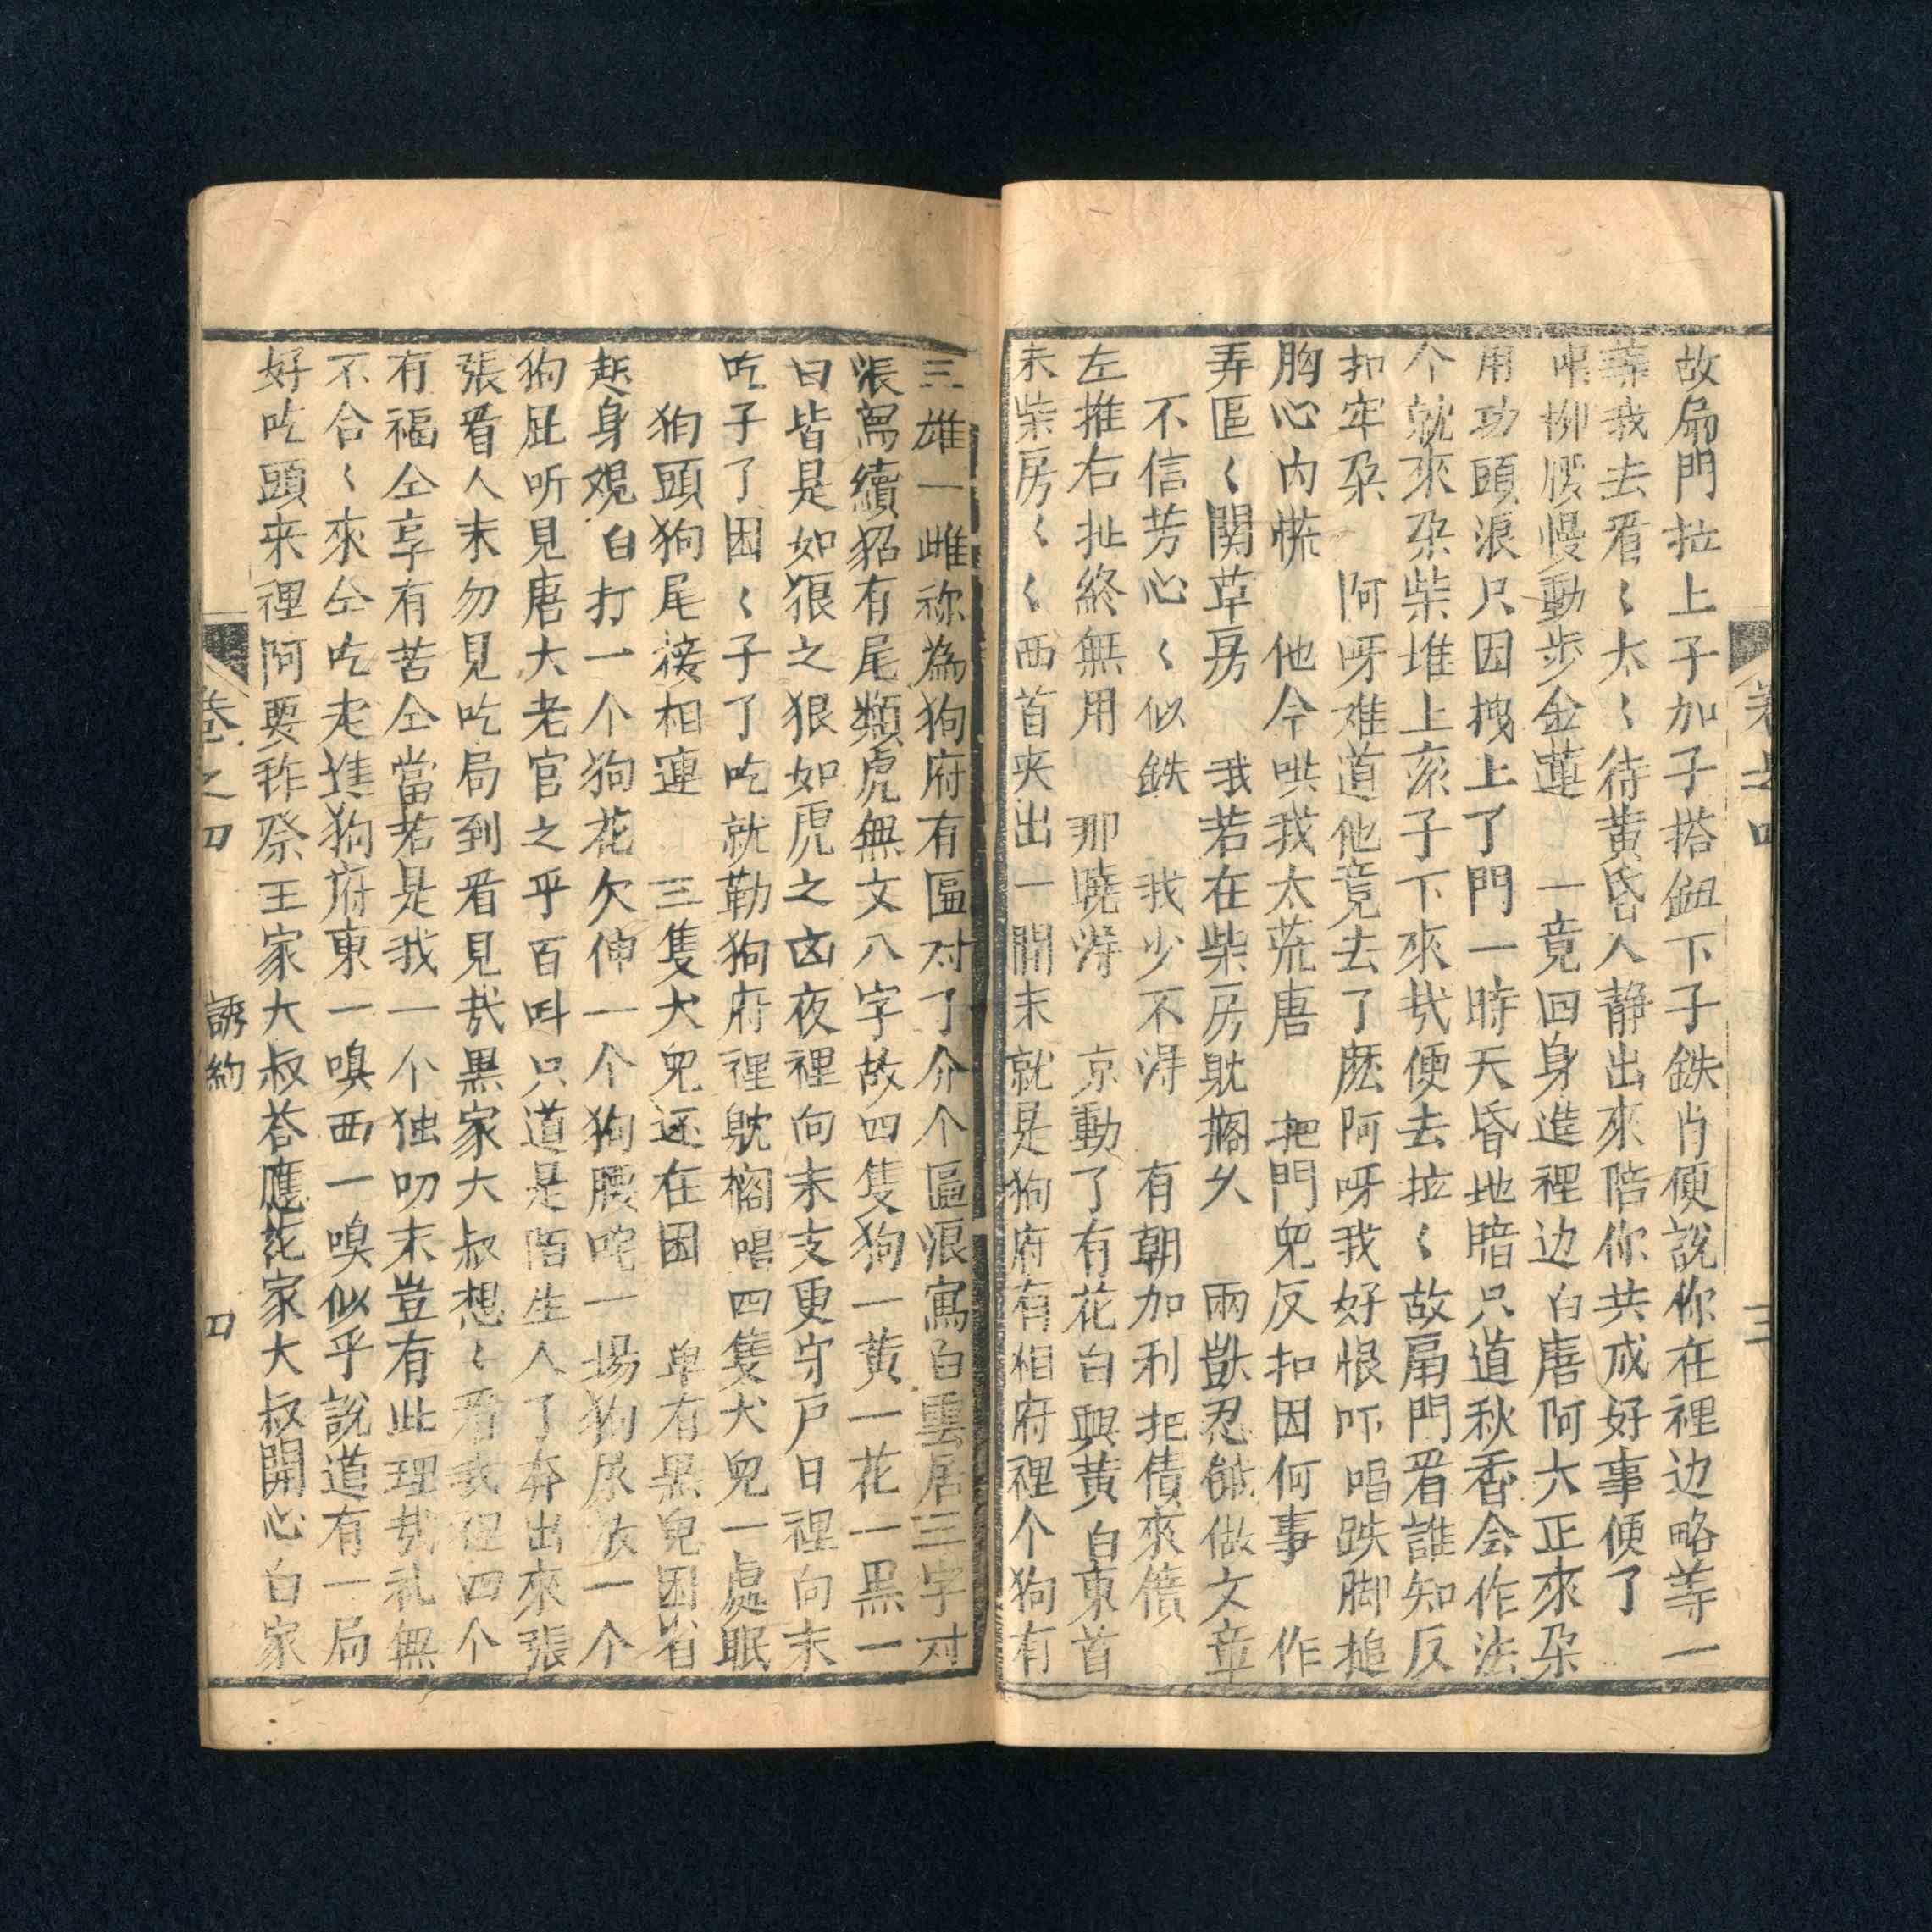 卷之四
三
故扇門拉上子加子搭鈕下子鉄肖便說你在裡边略等一
等我去看〻太〻待黄昏人静出來陪你共成好事便了
唱柳腰慢動步金蓮　一竟回身進裡边白唐阿大正來朶
用功頭浪只因拽上了門一時天昏地暗只道秋香会作法
个就來朶柴堆上亥子下來哉便去拉〻故扇門看誰知反
扣牢朶　阿呀难道他竟去了麽阿呀我好恨吓唱跌脚搥
胸心内慌　他今哄我太荒唐　把門兒反扣因何事　作
弄區〻関草房　我若在柴房躭擱久　兩獃忍餓做文章
不信芳心〻似鉄　我少不得　有朝加利把債來償
左推右扯終無用　那曉得　京動了有花白與黄白東首
末柴房〻〻西首夾出一開末就是狗府有相府裡个狗有
三雄一雌祢為狗府有區对了介个區浪寓白雲居三字对
張寫續貂有尾類虎無文八字故四隻狗一黄一花一黒一
曰皆是如狼之狠如虎之凶夜裡向末支更守戸日裡向末
吃子了困〻子了吃就勒狗府裡躭擱唱四隻犬兒一處眠
狗頭狗尾接相連　三隻犬兒还在困　単有黒兒困省
起身覌白打一个狗花欠伸一个狗腰𡁻一場狗尿放一个
狗屁听見唐大老官之乎百呌只道是陌生人了奔出來張
張看人末勿見吃局到看見哉黒家大叔想〻看我裡四个
有福仝享有苦仝當若是我一个独叨末豈有此理哉礼無
不合〻來仝吃走進狗府東一嗅西一嗅似乎說道有一局
好吃頭来裡阿要祚祭王家大叔荅應花家大叔開心白家
卷之四
誘約
四